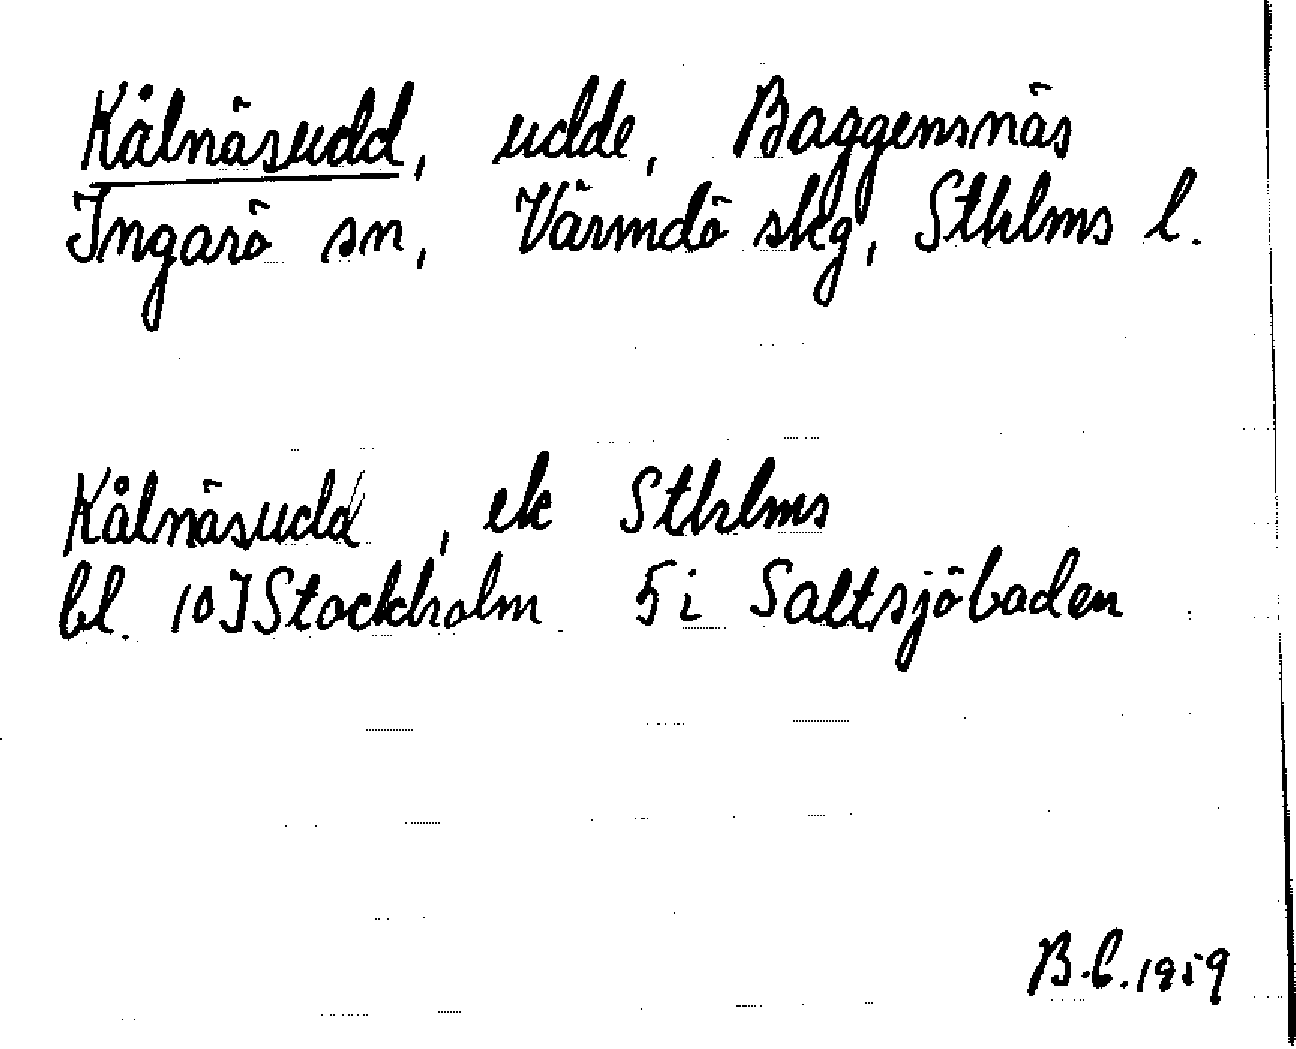 Kålnäsudd, udde, Baggensnäs
Ingarö sn, Värmdö skg, Sthlms l.
Kålnäsudd, ek Sthlms
bl. 10J Stockholm 5 i Saltsjöbaden
B.C. 1959